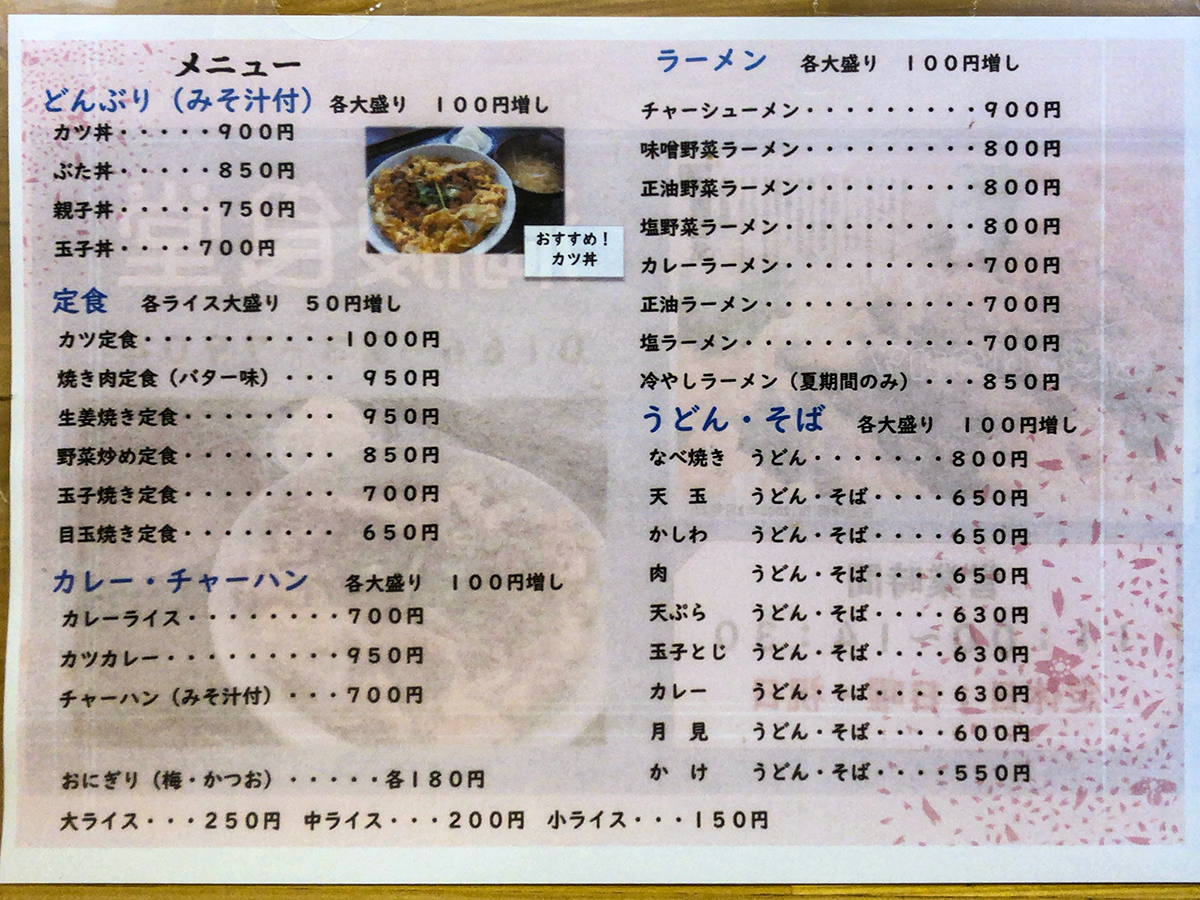 メニュー
どんぶり（みそ汁付）各大盛り　１００円増し
カツ丼・・・・・９００円
ぶた丼・・・・・８５０円
親子丼・・・・・７５０円
玉子丼・・・・７００円
おすすめ！
カツ丼
定食　各ライス大盛り　５０円増し
カツ定食・・・・・・・・・・１０００円
焼き肉定食（バター味）・・・　９５０円
生姜焼き定食・・・・・・・・　９５０円
野菜炒め定食・・・・・・・・　８５０円
玉子焼き定食・・・・・・・・　７００円
目玉焼き定食・・・・・・・・　６５０円
カレー・チャーハン　各大盛り　１００円増し
カレーライス・・・・・・・・７００円
カツカレー・・・・・・・・・９５０円
チャーハン（みそ汁付）・・・７００円
おにぎり（梅・かつお）・・・・・各１８０円
大ライス・・・２５０円　中ライス・・・２００円　小ライス・・・１５０円
ラーメン　各大盛り　１００円増し
チャーシューメン・・・・・・・・・９００円
味噌野菜ラーメン・・・・・・・・・８００円
正油野菜ラーメン・・・・・・・・・８００円
塩野菜ラーメン・・・・・・・・・・８００円
カレーラーメン・・・・・・・・・・７００円
正油ラーメン・・・・・・・・・・・７００円
塩ラーメン・・・・・・・・・・・・７００円
冷やしラーメン（夏期間のみ）・・・８５０円
うどん・そば　各大盛り　１００円増し
なべ焼き　うどん・・・・・・・８００円
天　玉　　うどん・そば・・・・６５０円
かしわ　　うどん・そば・・・・６５０円
肉　　　　うどん・そば・・・・６５０円
天ぷら　　うどん・そば・・・・６３０円
玉子とじ　うどん・そば・・・・６３０円
カレー　　うどん・そば・・・・６３０円
月　見　　うどん・そば・・・・６００円
か　け　　うどん・そば・・・・５５０円